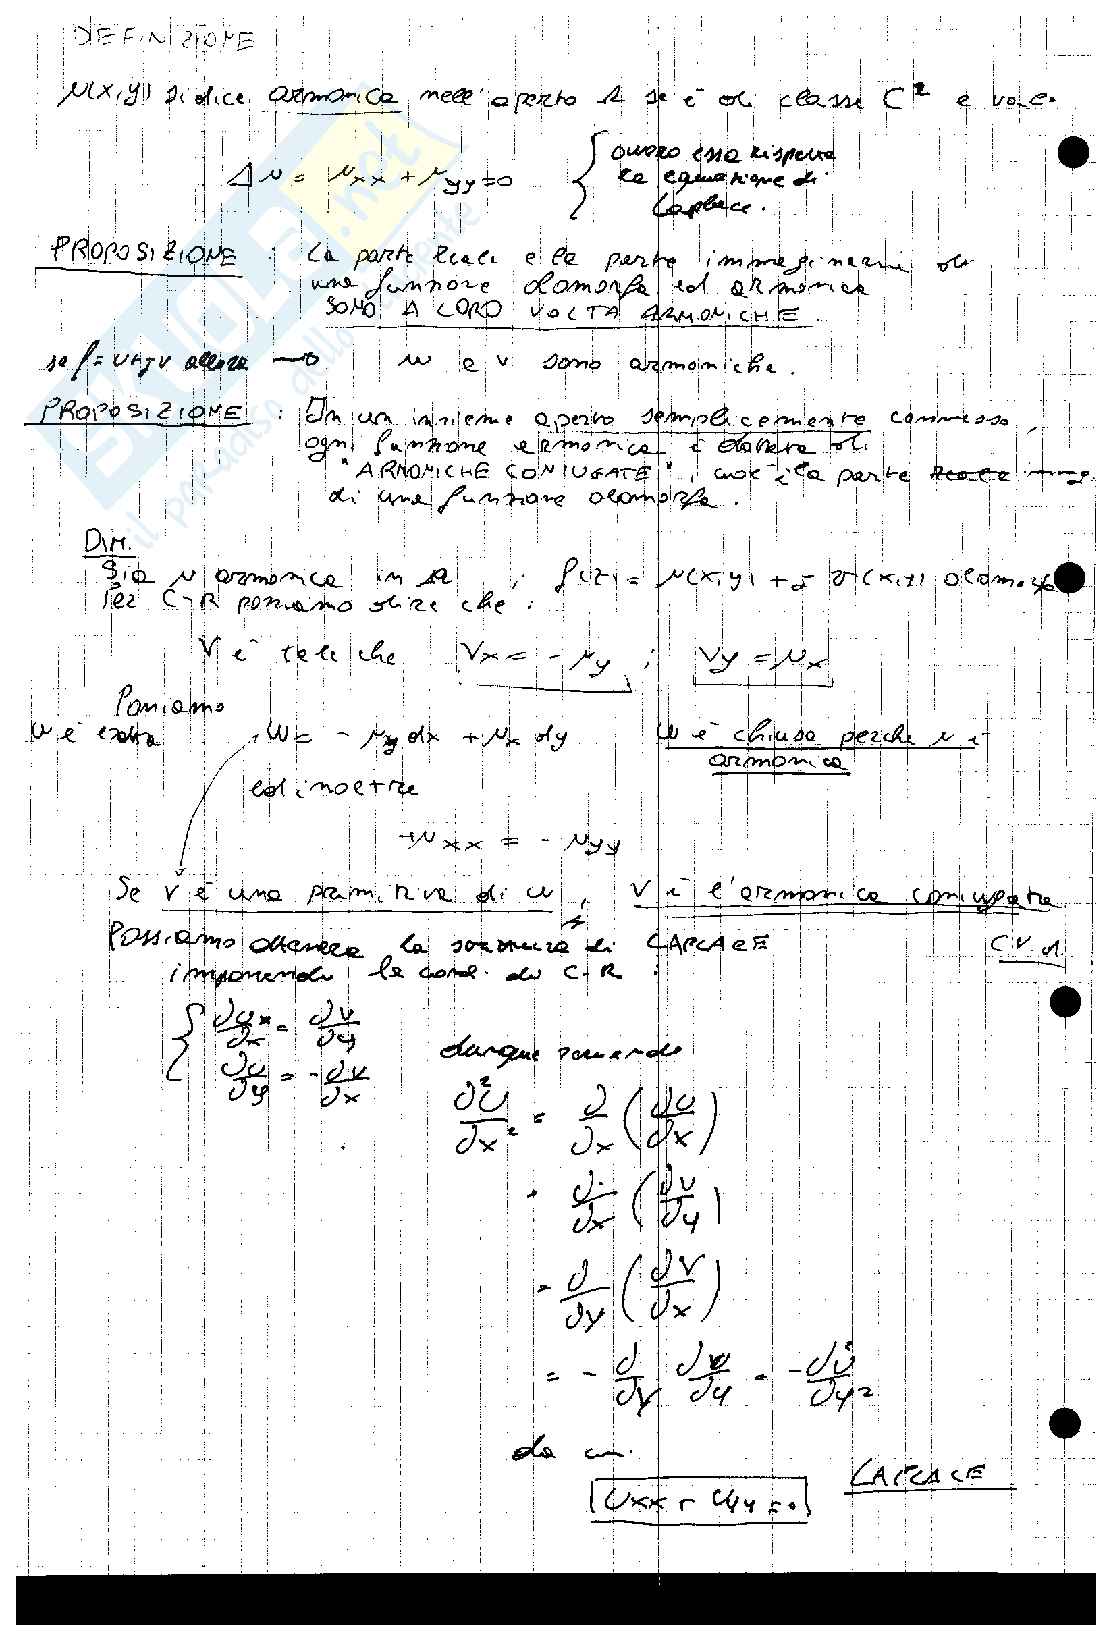 DEFINIZIONE
u(x,y) si dice armonica nell'aperto Ω se è di classe C² e vale
Δu = uxx + uyy = 0
ovvero essa rispetta
la equazione di
Laplace.
PROPOSIZIONE : La parte reale e la parte immaginaria di
una funzione olomorfa ed armonica
SONO A LORO VOLTA ARMONICHE
se f = u+jv allora → u e v sono armoniche.
PROPOSIZIONE : In un insieme aperto semplicemente connesso,
ogni funzione armonica è dotata di
"ARMONICHE CONIUGATE", cioè è la parte
di una funzione olomorfa.
DIM.
Sia u armonica in Ω ; f(z) = u(x,y) + j v(x,y) olomorfa
Per C-R possiamo dire che :
V è tale che Vx = - uy ; Vy = ux
Poniamo
ω è esatta ω = - uy dx + ux dy ω è chiusa perche u è
armonica
ed inoltre
+uxx = - uyy
Se V è una primitiva di ω , V è l'armonica coniugata
Possiamo ottenere la struttura di LAPLACE C.V.d.
imponendo le cond. di C-R :
∂u/∂x = ∂v/∂y
∂u/∂y = - ∂v/∂x
dunque
∂²u/∂x² = ∂/∂x (∂u/∂x)
= ∂/∂x (∂v/∂y)
= ∂/∂y (∂v/∂x)
= - ∂/∂y ∂u/∂y = - ∂²u/∂y²
da cui
Uxx + Uyy = 0 LAPLACE
SKUOLA.net
il paradiso dello studente